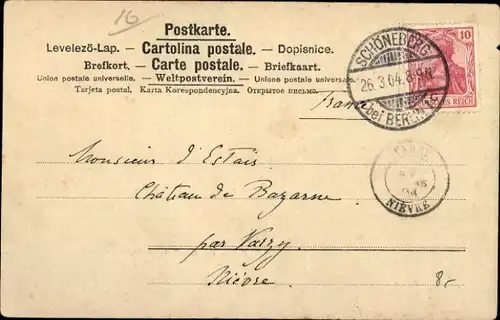 16
Postkarte.
Levelező-Lap. — Cartolina postale. — Dopisnice.
Brefkort. — Carte postale. — Briefkaart.
Union postale universelle. — Weltpostverein. — Unione postale universale.
Tarjeta postal. Karta Korespondencyjna. Открытое письмо.
SCHÖNEBERG
26.3.04.8-9N.
(bei BERLIN)
10
REICH
Monsieur d'Estais
Château de Bazarne
par Varzy
Nièvre
NIÈVRE
8.-